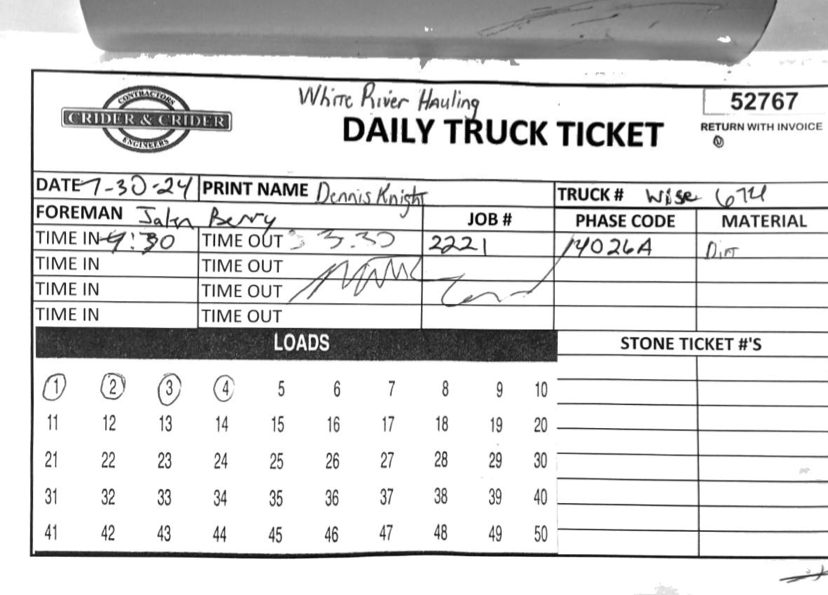 White River Hauling
CONTRACTORS
CRIDER & CRIDER
ENGINEERS
DAILY TRUCK TICKET
52767
RETURN WITH INVOICE
DATE 7-30-24 PRINT NAME Dennis Knight TRUCK # Wise 674
FOREMAN Berry JOB # PHASE CODE MATERIAL
TIME IN 9:30 TIME OUT 3:30 2221 14026A Dirt
TIME IN TIME OUT
TIME IN TIME OUT
TIME IN TIME OUT
LOADS STONE TICKET #'S
1 2 3 4 5 6 7 8 9 10
11 12 13 14 15 16 17 18 19 20
21 22 23 24 25 26 27 28 29 30
31 32 33 34 35 36 37 38 39 40
41 42 43 44 45 46 47 48 49 50